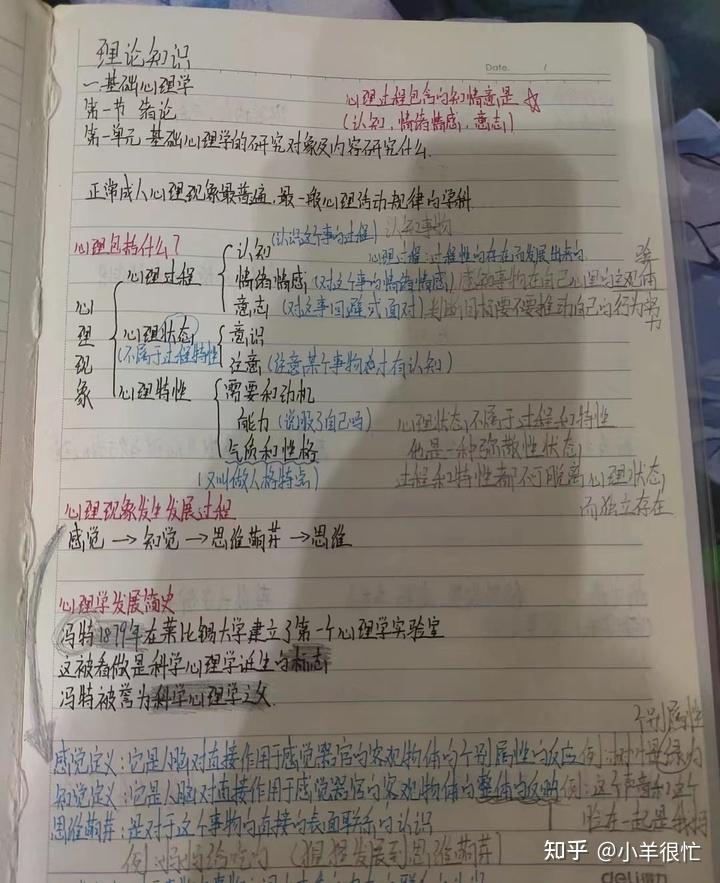 理论知识
Date.
一.基础心理学
第一节 绪论
心理过程包含的知情意是☆
(认知、情绪情感、意志)
第一单元 基础心理学的研究对象及内容研究什么.
正常成人心理现象最普遍、最一般心理活动规律的学科
心理包括什么?
心理现象
心理过程
认知 (认识这个事的过程) 认知事物
心理过程:过程性的存在而发展出来的
情绪情感 (对这个事的情绪情感) 感知事物在自己心里的主观体验
意志 (对这事回避或面对) 判断目标要不要推动自己的行为努力
心理状态 (不属于过程特性)
意识
注意 (注意某个事物才有认知)
心理特性
需要和动机
能力 (说服了自己吗)
气质和性格
(又叫做人格特点)
心理状态不属于过程和特性
他是一种弥散性状态
过程和特性都不可脱离心理状态
而独立存在
心理现象发生发展过程
感觉→知觉→思维萌芽→思维
心理学发展简史
冯特1879年在莱比锡大学建立了第一个心理学实验室
这被看做是科学心理学诞生的标志
冯特被誉为科学心理学之父
个别属性
感觉定义:它是人脑对直接作用于感觉器官的客观物体的个别属性的反应 例:树叶是绿的
知觉定义:它是人脑对直接作用于感觉器官的客观物体的整体的反映 例:这个声音和这个
脸在一起是我妈
思维萌芽:是对于这个事物的直接的表面联系的认识
例 妈妈给吃的 (猩猩发展到思维萌芽)
知乎 @小羊很忙
deli